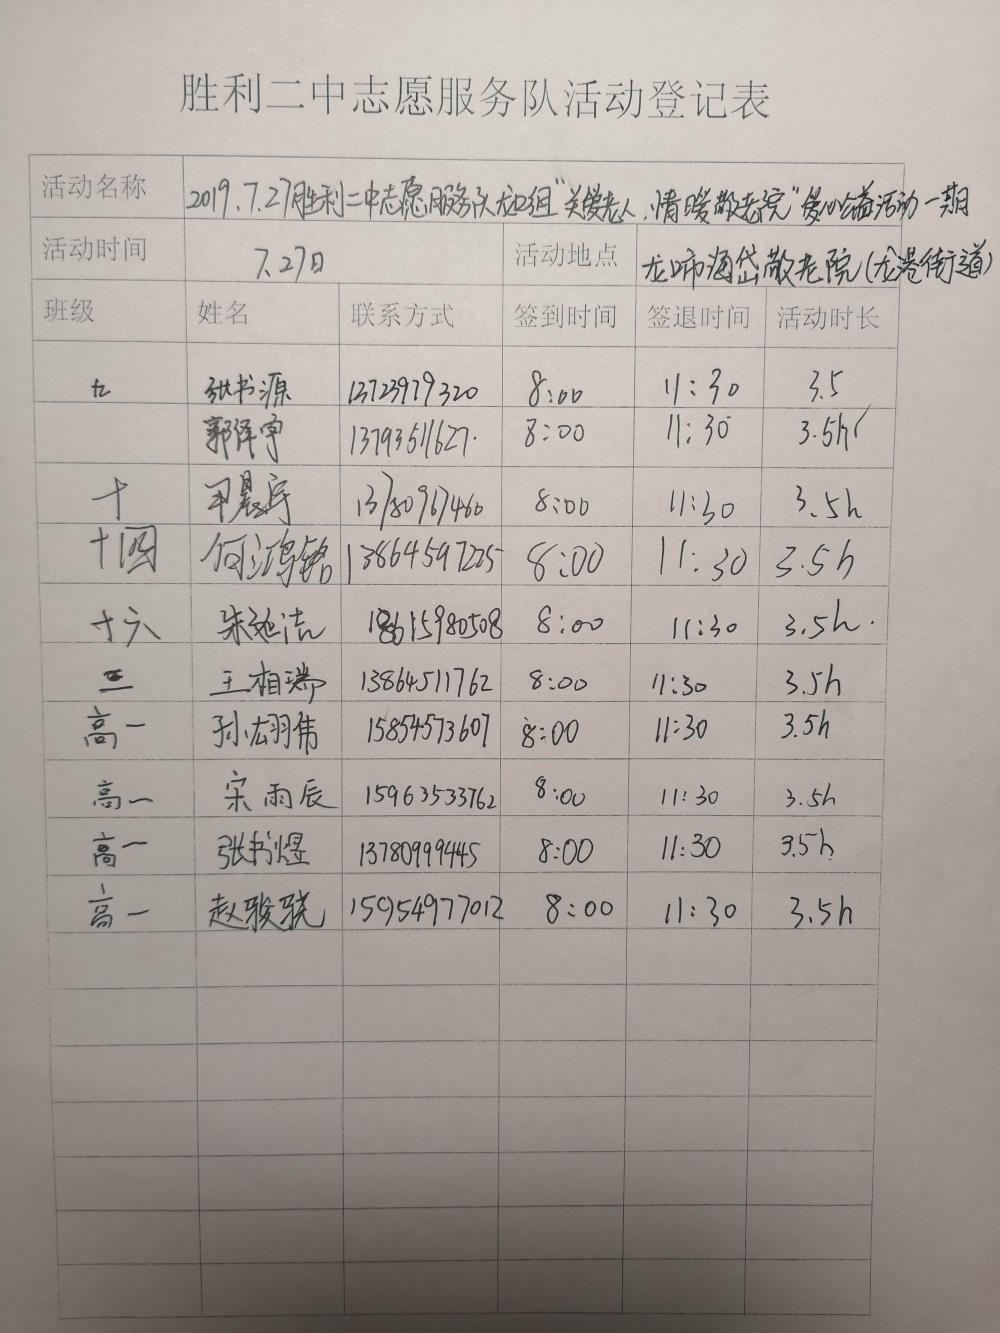 胜利二中志愿服务队活动登记表
活动名称 2019.7.27胜利二中志愿服务队龙口组"关爱老人,情暖敬老院"爱心公益活动一期
活动时间 7.27日 活动地点 龙口市海岱敬老院(龙港街道)
班级 姓名 联系方式 签到时间 签退时间 活动时长
九 张书源 13723979320 8:00 11:30 3.5
郭泽宇 13793511627. 8:00 11:30 3.5h
十 晨宇 13780967460 8:00 11:30 3.5h
十四 何鸿铭 13864597225 8:00 11:30 3.5h
十六 朱延洁 18615980508 8:00 11:30 3.5h.
三 王相瑞 13864511762 8:00 11:30 3.5h
高一 孙翊伟 15854573607 8:00 11:30 3.5h
高一 宋雨辰 15963533762 8:00 11:30 3.5h
高一 张书煜 13780999445 8:00 11:30 3.5h
高一 赵骏骁 15954977012 8:00 11:30 3.5h